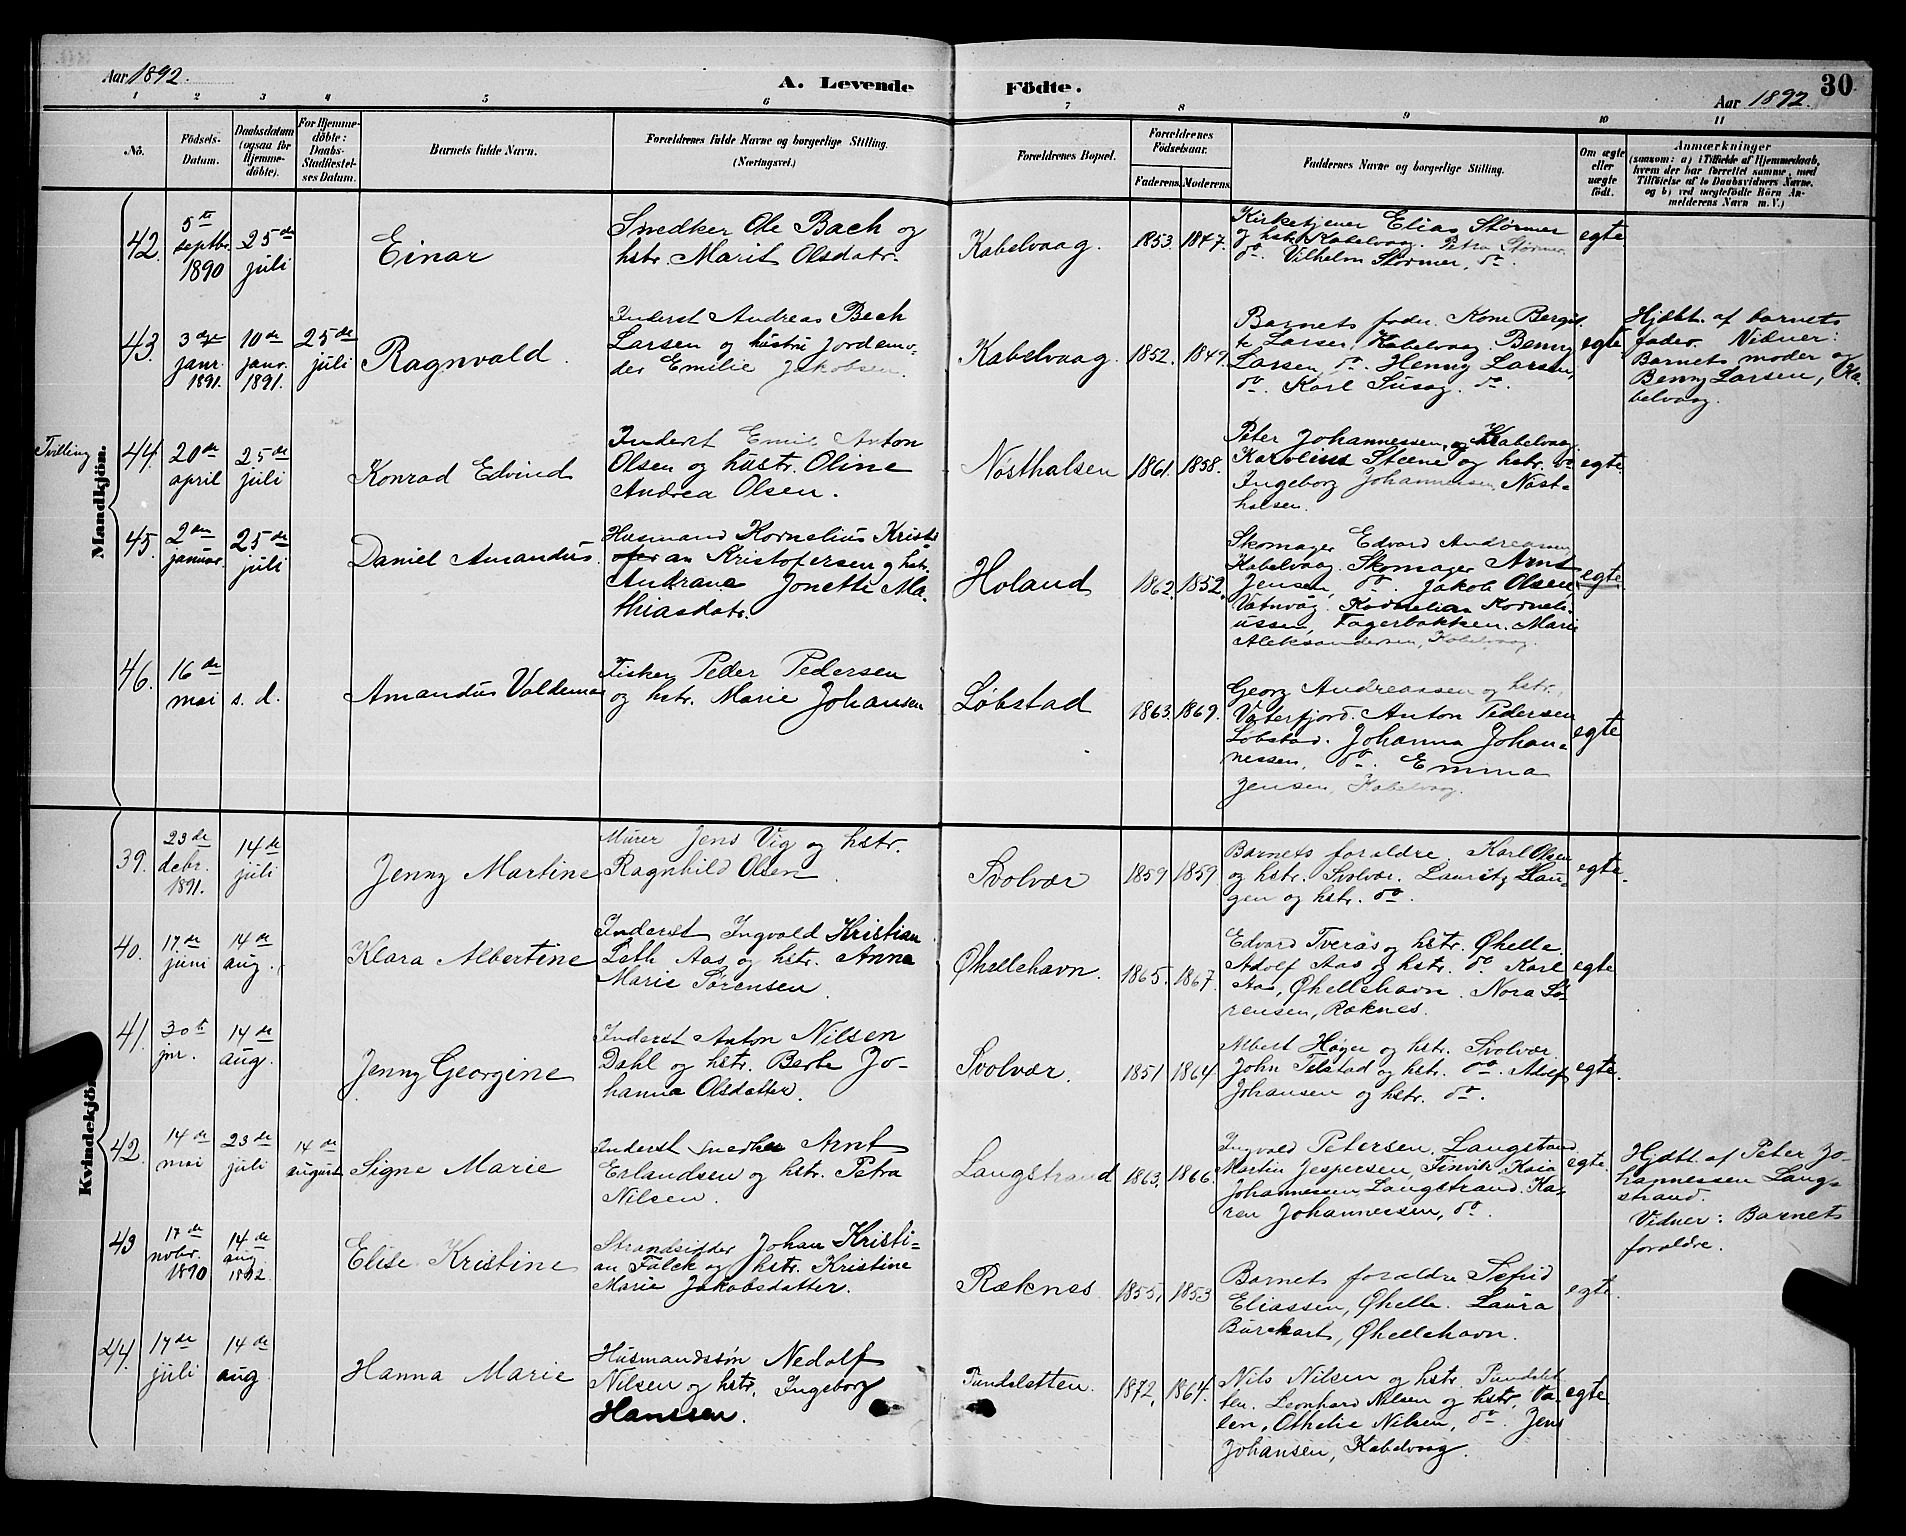 Aar 1892.
A. Levende
Födte.
30
Aar 1892.
1 2 3 4 5 6 7 8 9 10 11
Nö.
Födsels-
Datum.
Daabsdatum
(ogsaa for
Hjemme-
döbte).
For Hjemme-
döbte:
Daabs-
Stadfæstel-
ses Datum.
Barnets fulde Navn.
Forældrenes fulde Navne og borgerlige Stilling.
(Næringsvei.)
Forældrenes Bopæl.
Forældrenes
Födselsaar.
Faderens. Moderens.
Faddernes Navne og borgerlige Stilling.
Om ægte
eller
uægte
födt.
Anmærkninger
(saasom: a) i Tilfælde af Hjemmedaab,
hvem der har forrettet samme, med
Tilföielse af to Daabsvidners Navne,
og b) ved uægtefödte Börn An-
melderens Navn m. V.)
Mandkjön.
42.
5te
septbr.
1890
25de
juli
Einar
Snedker Ole Bach og
hstr. Marit Olsdatr.
Kabelvaag.
1853. 1847.
Kirketjener Elias Størmer
og hstr. Kabelvaag. Petra Størmer
do. Vilhelm Størmer, do
egte
43.
3die
janr.
1891.
10de
janr.
1891.
25de
juli
Ragnvald.
Inderst Andreas Bech
Larsen og hustru Jordemo-
der Emilie Jakobsen.
Kabelvaag.
1852. 1849.
Barnets fader. Kone Bergit-
te Larsen, Kabelvaag. Benny
Larsen, do. Henny Larsen,
do. Karl Susag. do.
egte
Hjdøbt. af barnets
fader. Vidner:
Barnets moder og
Benny Larsen, Ka-
belvaag.
Tvilling
44.
20de
april
25de
juli
Konrad Edvind
Inderst Emil Anton
Olsen og hustr. Oline
Andrea Olsen.
Nøsthalsen
1861. 1858.
Peter Johannessen, og Kabelvaag
Karolius Steene og hstr. do
Ingeborg Johannessen, Nøst-
halsen.
egte
45.
2den
januar
25de
juli
Daniel Amandus.
Husmand Kornelius Kristi
an Kristofersen og hstr.
Andrane Jonette Ma-
thiasdatr.
Holand
1862. 1852.
Skomager Edvard Andreassen
Kabelvaag. Skomager Arnt
Jensen, do. Jakob Olsen,
Vatnvåg. Kornelius Korneli-
ussen, Fagerbakken. Marie
Aleksandersen, Kabelvaag.
egte.
46.
16de
mai
s. d.
Amandus Valdemar
Fisker Peder Pedersen
og hstr. Marie Johansen
Løbstad
1863. 1869.
Georg Andreassen og hstr.,
Vaterfjord. Anton Pedersen
Løbstad. Johanna Johan-
nessen, do. Emma
Jensen, Kabelvaag.
egte
Kvindekjön.
39.
23de
debr.
1891.
14de
juli
Jenny Martine
Murer Jens Vig og hstr.
Ragnhild Olsen.
Svolvær
1859 1859
Barnets forældre. Karl Olsen
og hstr. Svolvær. Lauritz Hau-
gen og hstr. do.
egte.
40.
17de
juni
14de
aug.
Klara Albertine
Inderst Ingvald Kristian
Leth Aas og hstr. Anna
Marie Sørensen.
Øhellehavn.
1865. 1867.
Edvard Tverås og hstr. Øhelle.
Adolf Aas og hstr. do. Karl
Aas, Øhellehavn. Nora Sø-
rensen, Ræknes.
egte
41.
30te
jnr.
14de
aug.
Jenny Georgine
Inderst Anton Nilsen
Dahl og hstr. Berte Jo-
hanna Olsdatter.
Svolvær.
1851 1864
Albert Høyer og hstr. Svolvær.
John Tilstad og hstr. do. Adolf
Johansen og hstr. do.
egte.
42.
14de
mai
23de
juli
14de
august
Signe Marie
Inderst Snedker Arnt
Erlandsen og hstr. Petra
Nilsen.
Langstrand
1863. 1866.
Ingvald Petersen, Langstrand
Martin Jespersen, Finvik. Kaia
Johannessen, Langstrand. Ka-
ren Johannessen, do.
egte.
Hjdøbt. af Peter Jo-
hannessen Lang-
strand.
Vidner: Barnets
forældre.
43
17de
nobr.
1890
14de
aug
1892.
Elise Kristine
Strandsidder Johan Kristi-
an Falck og hstr. Kristine
Marie Jakobsdatter.
Ræknes.
1855. 1853
Barnets forældre
Eliassen, Øhelle. Laura
Burchart, Øhellehavn.
egte.
44.
17de
juli
14de
aug.
Hanna Marie
Husmandssøn Nedolf
Nilsen og hstr. Ingeborg
Hanssen.
Tundsletten.
1872. 1864.
Nils Nilsen og hstr. Tundslet
ten. Leonhard Nilsen og hstr.
Othelie Nilsen, do. Jens
Johansen, Kabelvaag.
egte.